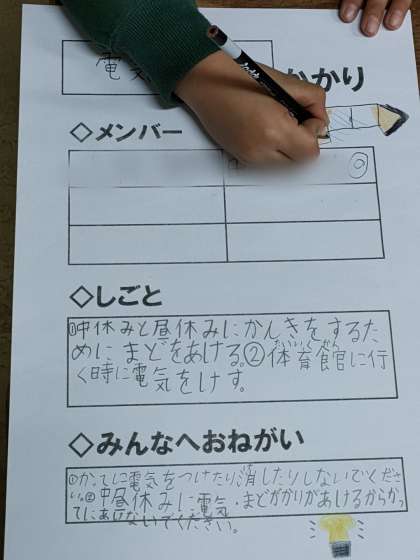 電気
かかり
◇メンバー
◇しごと
①中休みと昼休みにかんきをするた
めにまどをあける。②体育館に行
く時に電気をけす。
◇みんなへおねがい
①かってに電気をつけたり消したりしないでくださ
い。②中昼休みに電気・まどがかりがあけるからかっ
てにあけないでください。